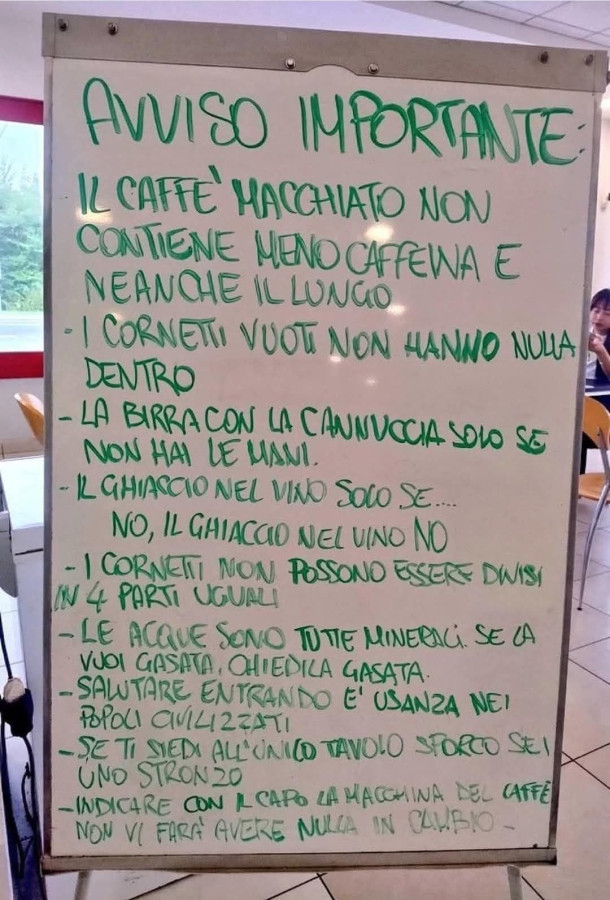 AVVISO IMPORTANTE:
IL CAFFE' MACCHIATO NON
CONTIENE MENO CAFFEINA E
NEANCHE IL LUNGO
- I CORNETTI VUOTI NON HANNO NULLA
DENTRO
- LA BIRRA CON LA CANNUCCIA SOLO SE
NON HAI LE MANI.
- IL GHIACCIO NEL VINO SOLO SE....
NO, IL GHIACCIO NEL VINO NO
- I CORNETTI NON POSSONO ESSERE DIVISI
IN 4 PARTI UGUALI
- LE ACQUE SONO TUTTE MINERALI. SE LA
VUOI GASATA, CHIEDILA GASATA.
- SALUTARE ENTRANDO E' USANZA NEI
POPOLI CIVILIZZATI
- SE TI SIEDI ALL'UNICO TAVOLO SPORCO SEI
UNO STRONZO
- INDICARE CON IL CAPO LA MACCHINA DEL CAFFÈ
NON VI FARA' AVERE NULLA IN CAMBIO -